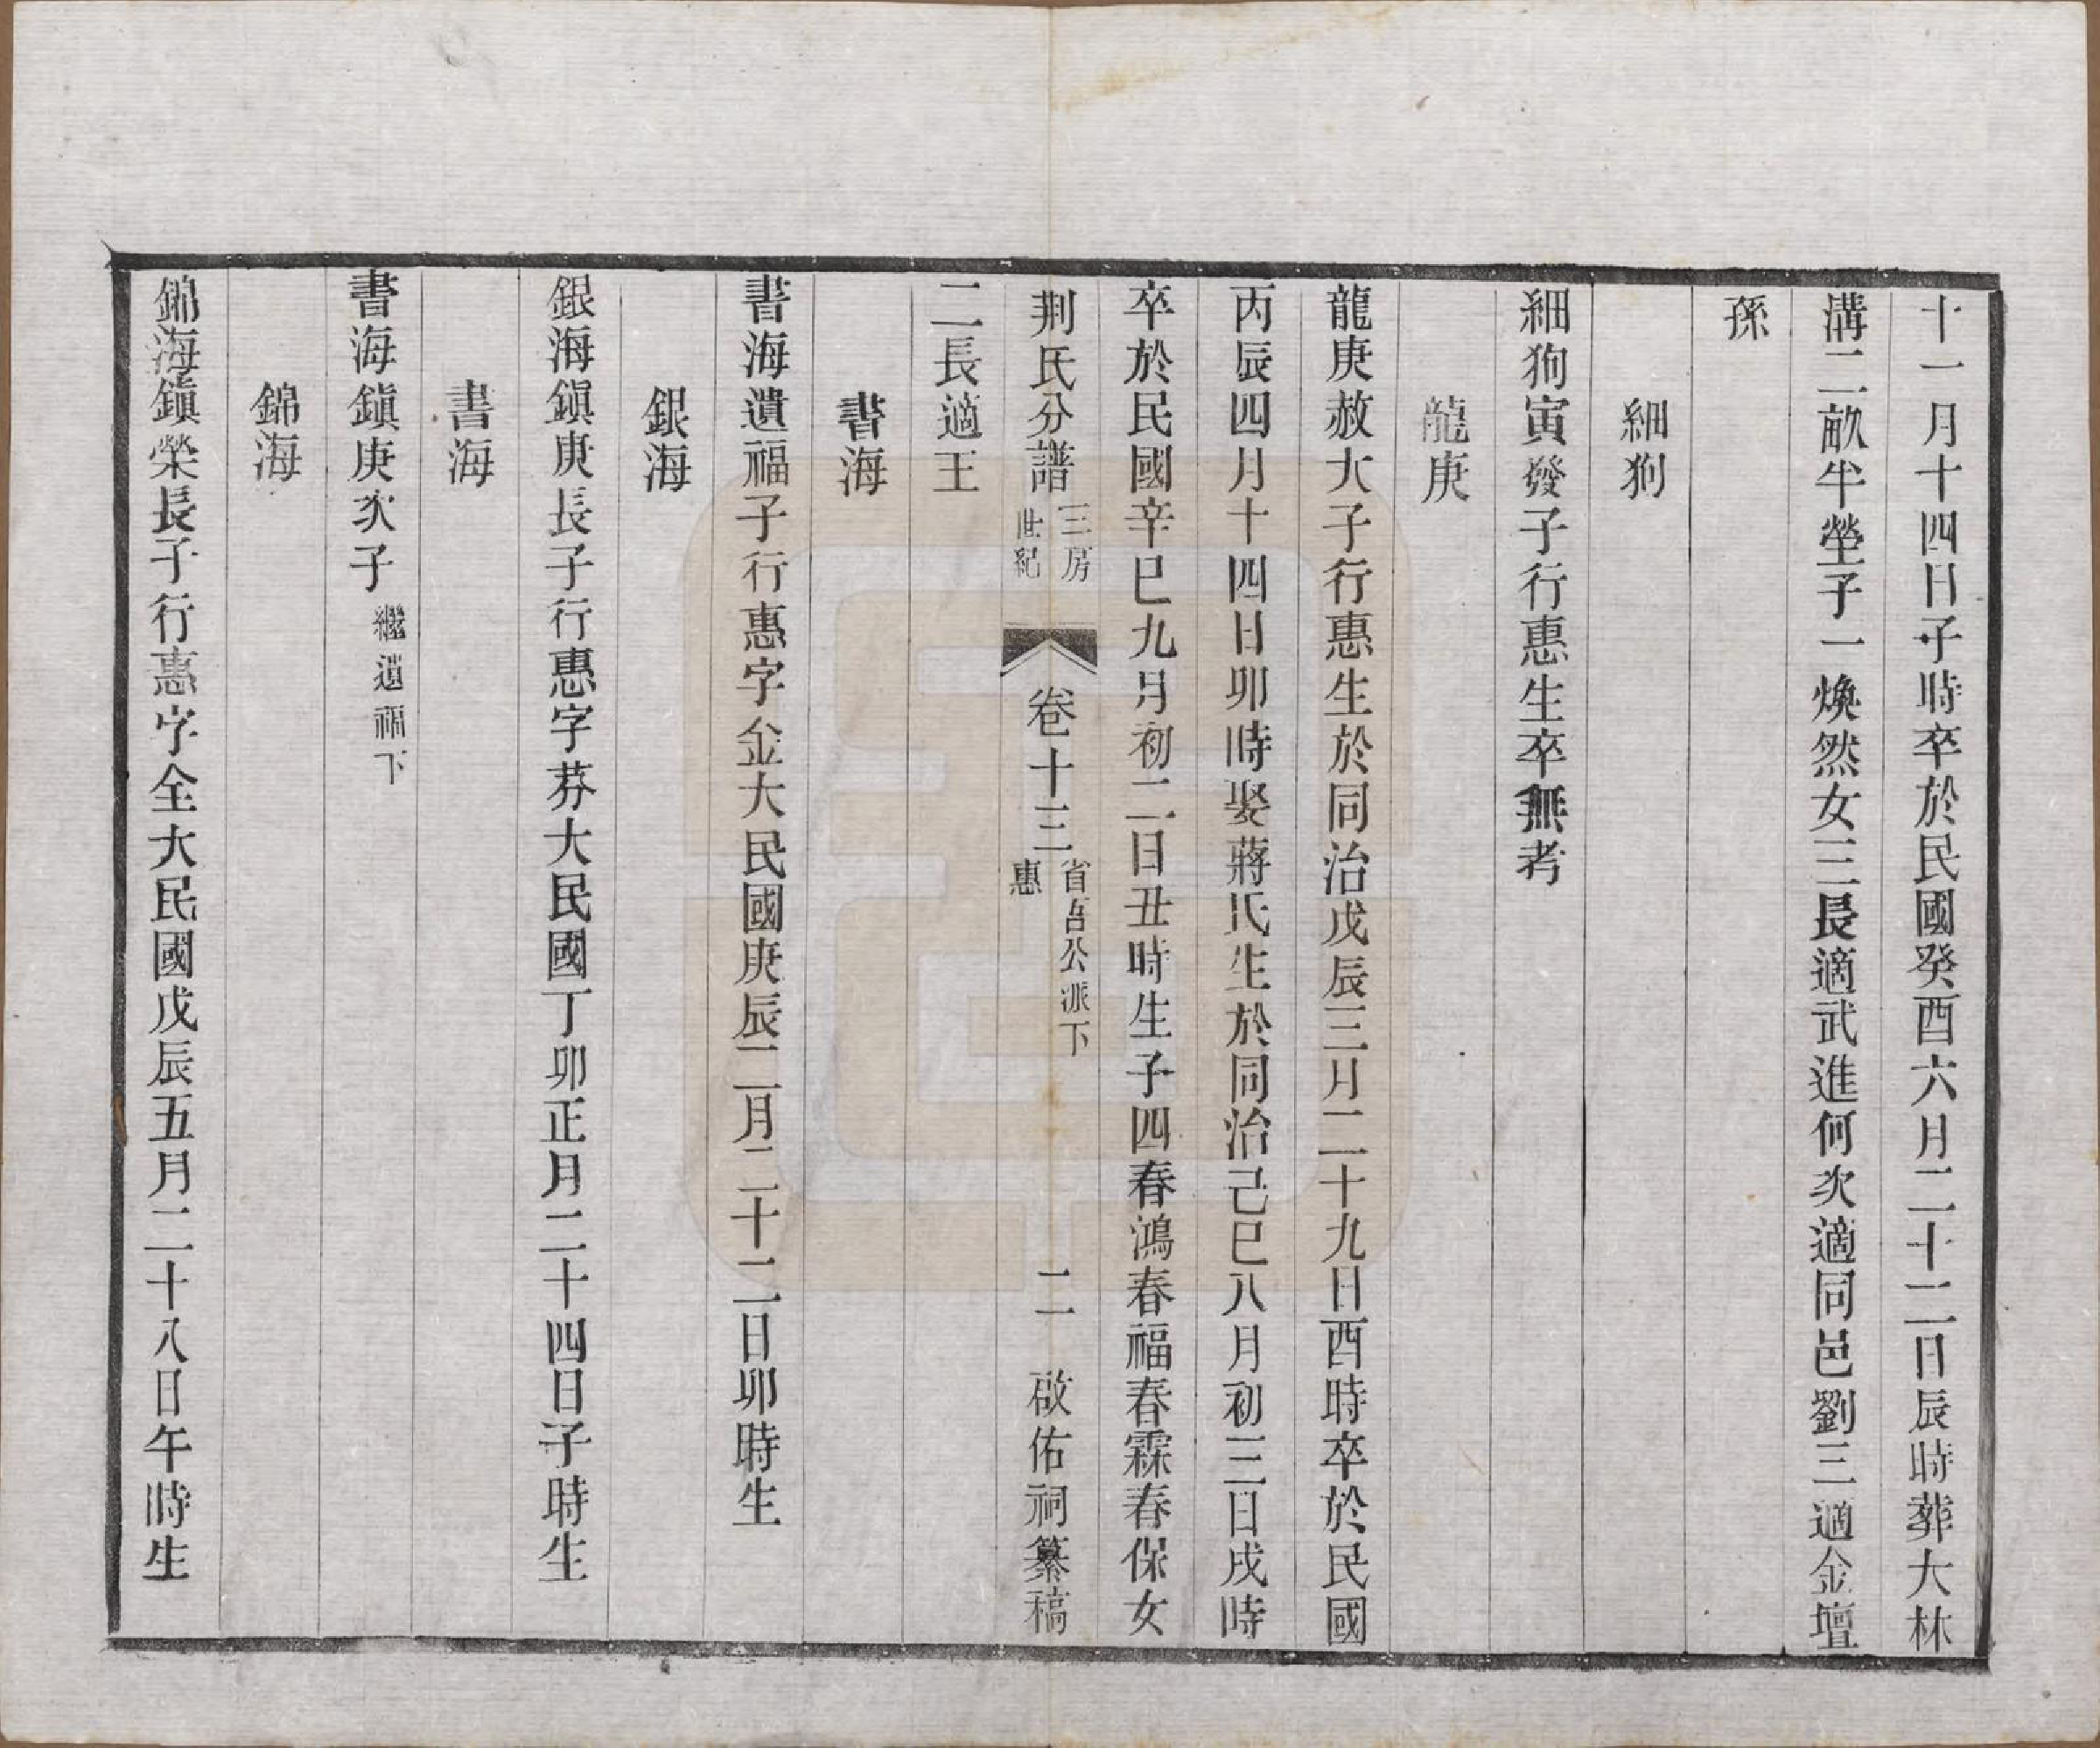 十一月十四日子時卒於民國癸酉六月二十二日辰時葬大林
溝二畝半塋子一煥然女三長適武進何次適同邑劉三適金壇
孫
細狗
細狗寅發子行惠生卒無考
龍庚
龍庚赦大子行惠生於同治戊辰三月二十九日酉時卒於民國
丙辰四月十四日卯時娶蔣氏生於同治己巳八月初三日戌時
卒於民國辛巳九月初二日丑時生子四春鴻春福春霖春保女
荆氏分譜 三房世紀 卷十三 省吾公派下惠 二 啟佑祠纂稿
二長適王
書海
書海遺福子行惠字金大民國庚辰二月二十二日卯時生
銀海
銀海鎮庚長子行惠字莽大民國丁卯正月二十四日子時生
書海
書海鎮庚次子繼遺福下
錦海
錦海鎮榮長子行惠字全大民國戊辰五月二十八日午時生